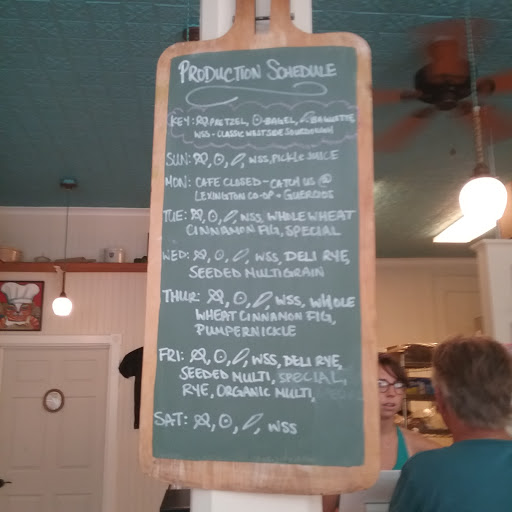 PRODUCTION SCHEDULE
KEY: PRETZEL, BAGEL, BAGUETTE
WSS = CLASSIC WEST SIDE SOURDOUGH
SUN: , , , WSS, PICKLE JUICE
MON: CAFE CLOSED - CATCH US @
LEXINGTON CO-OP + GUERCIOS
TUE: , , , WSS, WHOLE WHEAT
CINNAMON FIG, SPECIAL
WED: , , , WSS, DELI RYE,
SEEDED MULTIGRAIN
THUR: , , , WSS, WHOLE
WHEAT CINNAMON FIG,
PUMPERNICKLE
FRI: , , , WSS, DELI RYE,
SEEDED MULTI, SPECIAL,
RYE, ORGANIC MULTI,
SAT: , , , WSS